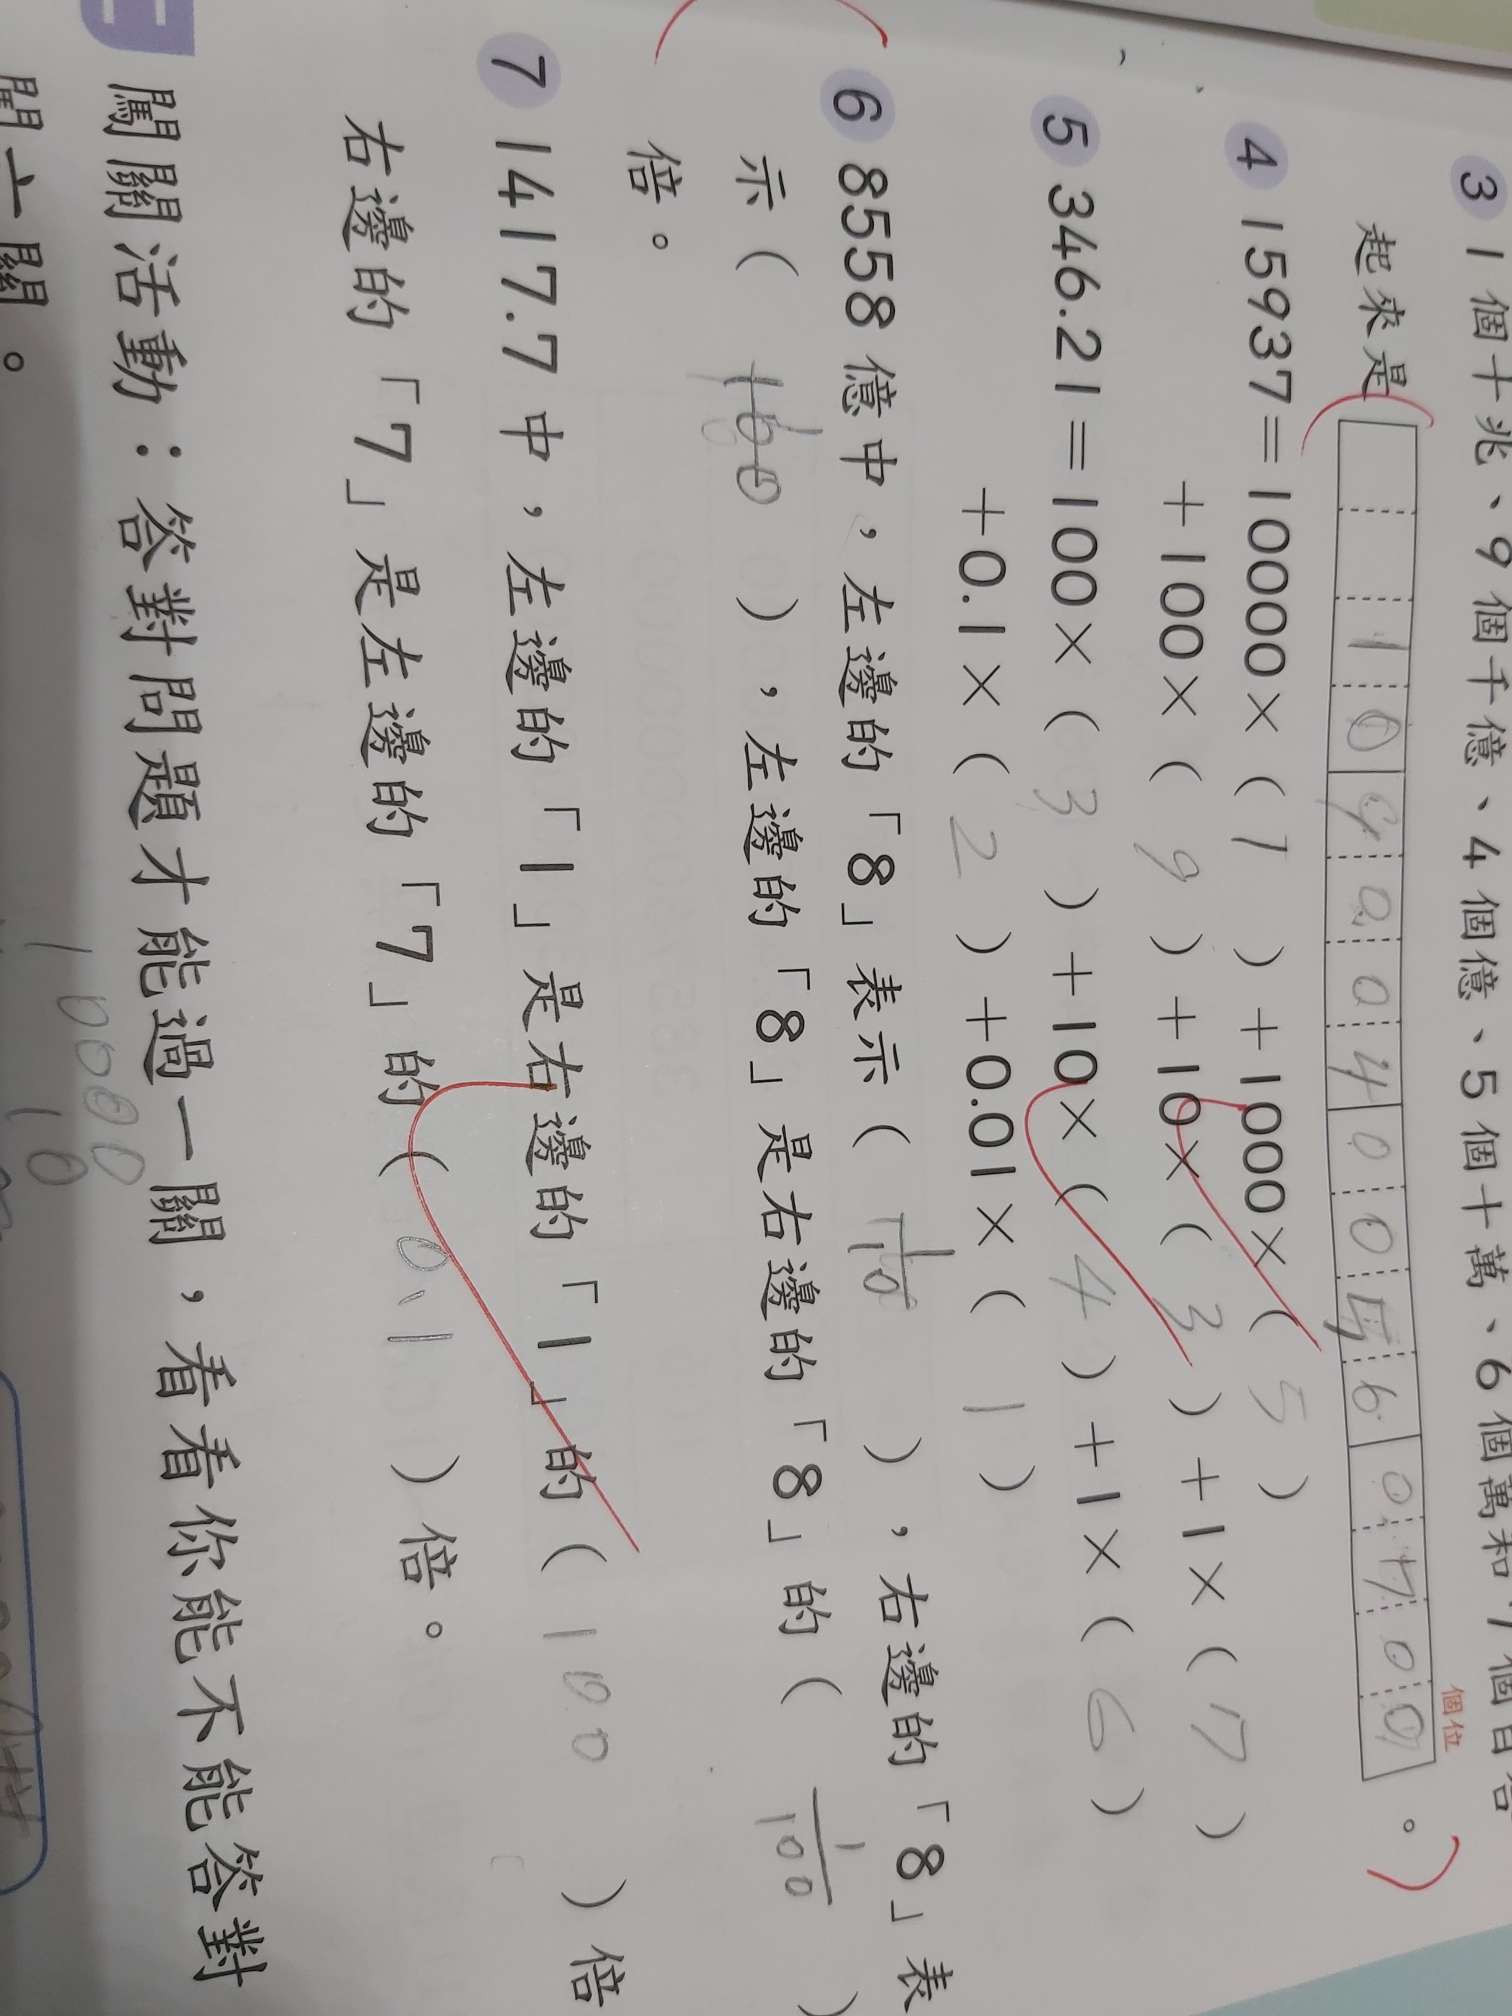 3 1個十兆、9個千億、4個億、5個十萬、6個萬和7個百合
起來是 1 0 9 0 0 4 0 0 5 6 0 7 0 0 。
個位
4 15937=10000×( 1 )+1000×( 5 )
+100×( 9 )+10×( 3 )+1×( 7 )
5 346.21=100×( 3 )+10×( 4 )+1×( 6 )
+0.1×( 2 )+0.01×( 1 )
6 8558億中,左邊的「8」表示( 1/10 ),右邊的「8」表
示( ),左邊的「8」是右邊的「8」的( 1/100 )
倍。
7 1417.7中,左邊的「1」是右邊的「1」的( 100 )倍
右邊的「7」是左邊的「7」的( 0.1 )倍。
闖關活動:答對問題才能過一關,看看你能不能答對
10000
10